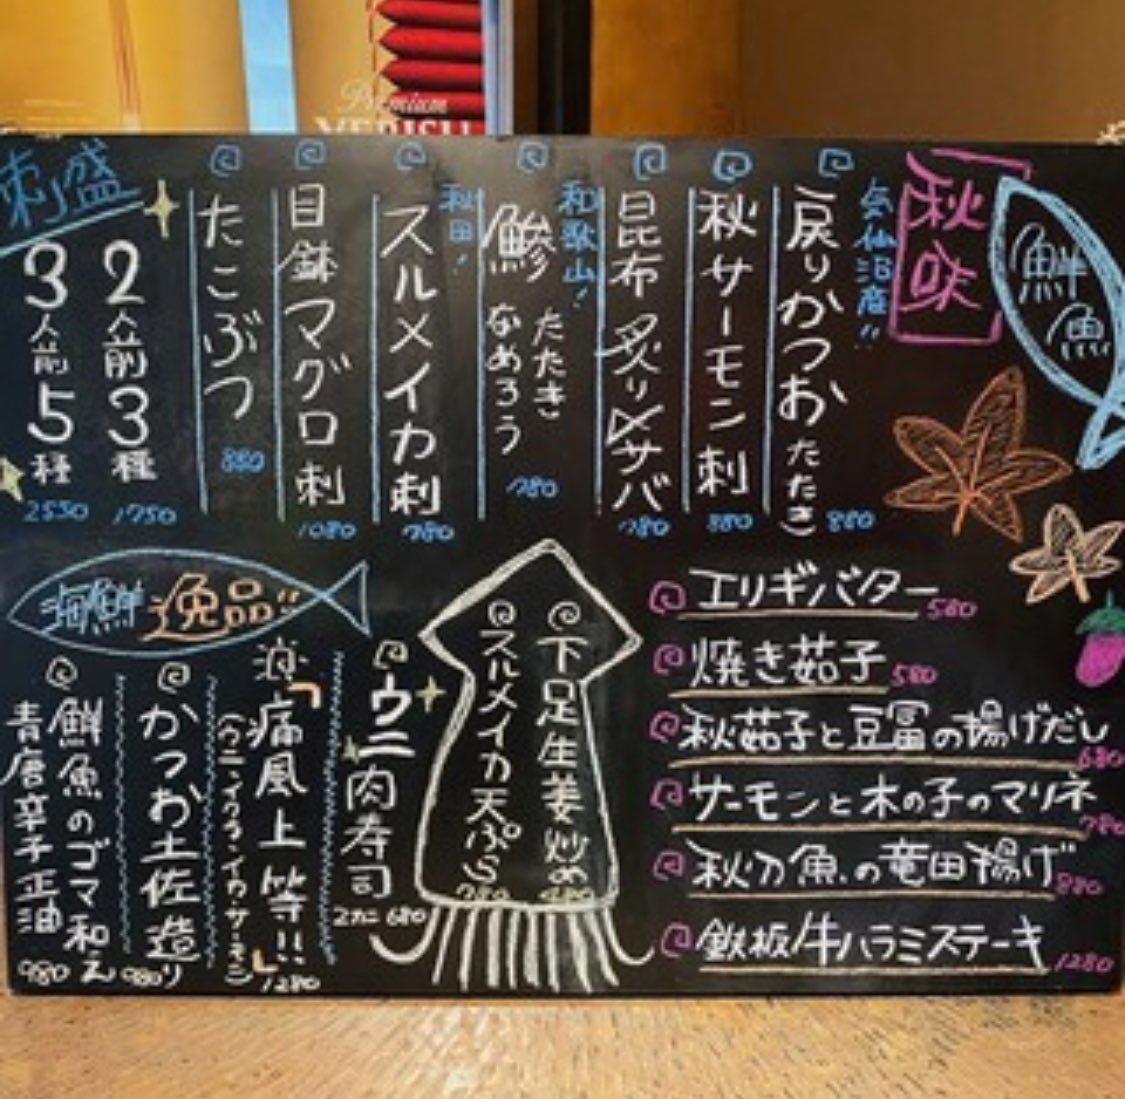 Premium
YEBISU
鮮魚
秋味
気仙沼産!!
戻りかつおたたき
880
秋サーモン刺
880
昆布炙り〆サバ
780
和歌山!
鯵
たたき
なめろう
780
秋田!
スルメイカ刺
780
目鉢マグロ刺
1080
たこぶつ
880
刺盛
2人前3種
1750
3人前5種
2550
海鮮逸品
ウニ肉寿司
2カン 680
「痛風上等!!」
(ウニ、イクラ、イカ、サーモン)
1280
かつお土佐造り
980
鮮魚のゴマ和え
青唐辛子正油
980
下足生姜炒め
スルメイカ天ぷら
780
エリギバター
580
焼き茹子
580
秋茹子と豆冨の揚げだし
680
サーモンと木の子のマリネ
780
秋刀魚の竜田揚げ
880
鉄板牛ハラミステーキ
1280